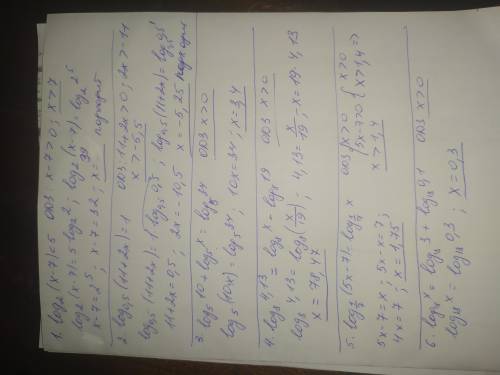 1. log₂(x-7)=5 ОДЗ: x-7>0; x>7
log₂(x-7)=5log₂2; log₂(x-7)=log₂2⁵
x-7=2⁵; x-7=32; x=39 подходит
2. log₀,₅(11+2x)=1 ОДЗ: 11+2x>0; 2x>-11
x>-5,5
log₀,₅(11+2x)=1 log₀,₅0,5; log₀,₅(11+2x)=log₀,₅0,5¹
11+2x=0,5; 2x=-10,5 x=-5,25 подходит
3. log₅10+log₅x=log₅34 ОДЗ x>0
log₅(10x)=log₅34; 10x=34; x=3,4
4. log₈4,13=log₈x-log₈19 ОДЗ x>0
log₈4,13=log₈(x/19); 4,13=x/19; x=19·4,13
x=78,47
5. (5x-7)= x ОДЗ {x>0 5x-7>0 {x>0 x>1,4 =>
5x-7=x; 5x-x=7; x>1,4
4x=7; x=1,75
6. log₁₁x=log₁₁3+log₁₁0,1 ОДЗ x>0
log₁₁x=log₁₁0,3; x=0,3